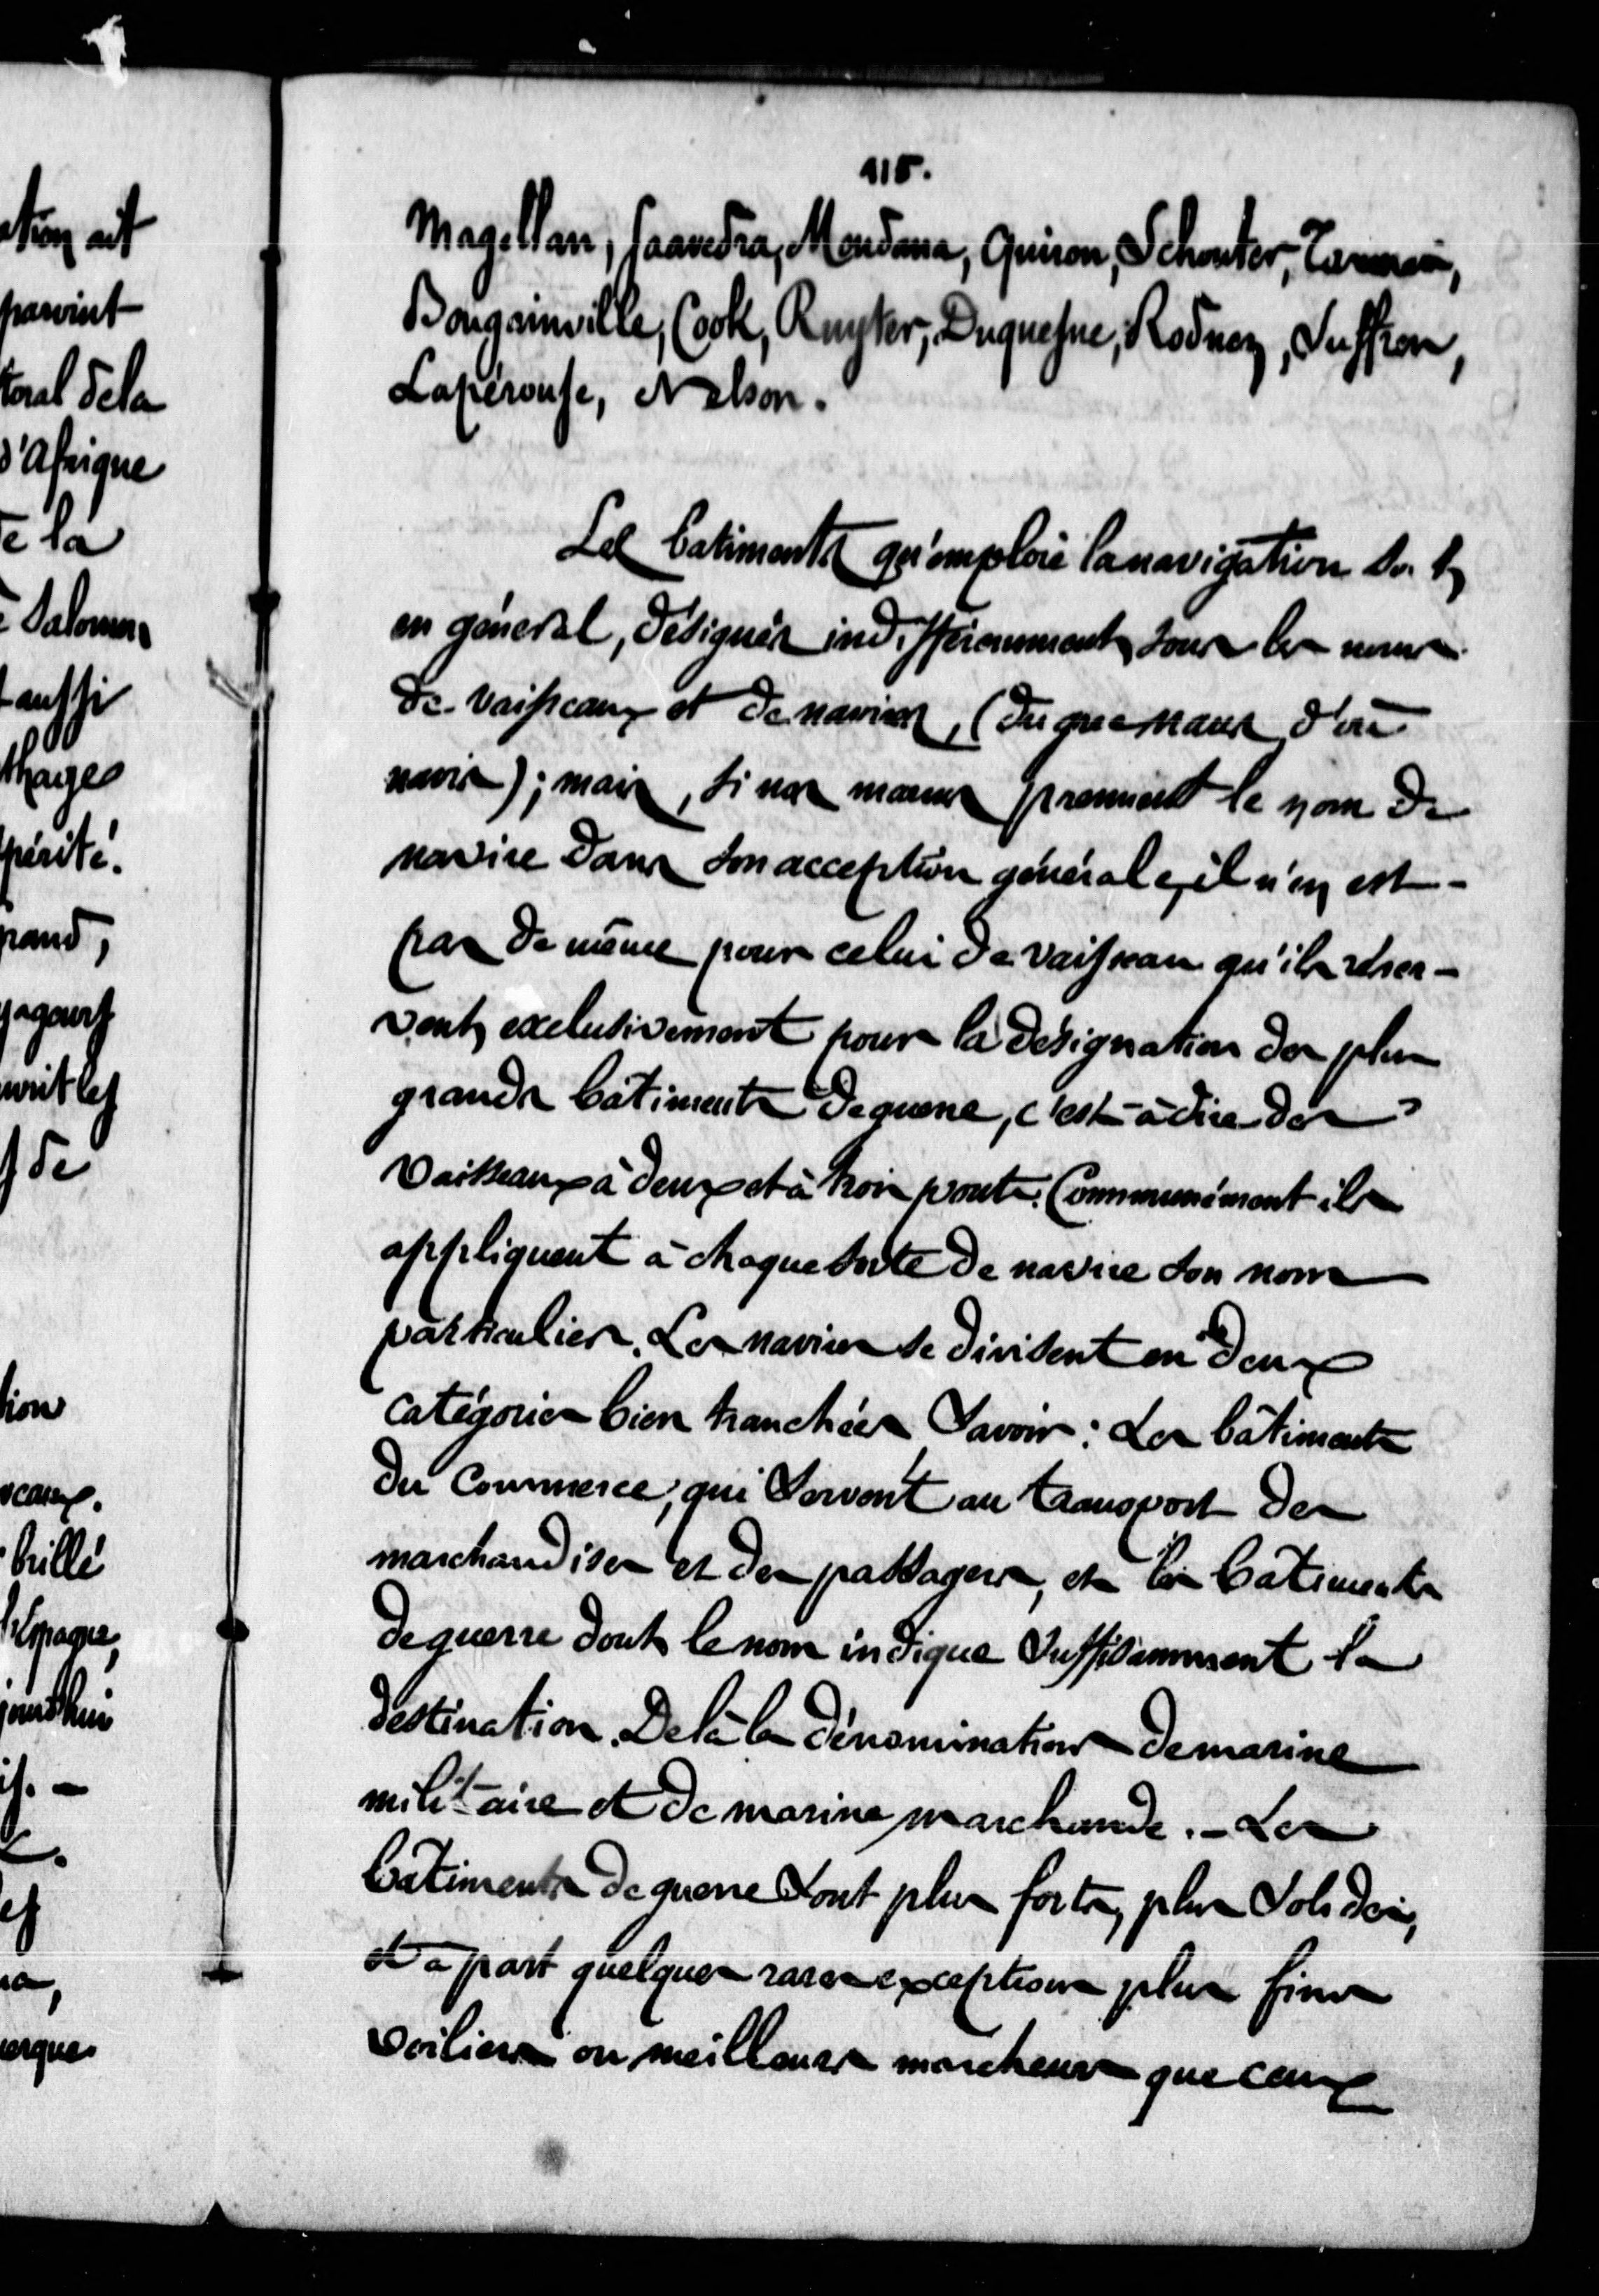 ation ait
parvint
toral dela
d'Afrique
de la
Salomon
aussi
thage
périté.
rand,
wit les
de
tion
brillé
Espagne,
jourd'hui
115.
Magellan, Saavedra, Mendana, Quiron, Schouter,
Bougainville, Cook, Ruyter, Duquesne, Rodney, Suffren,
Lapérouse, Nelson.
Les batiments qu'emploie la navigation sont
en général, désignés indifféremment sous les noms
de vaisseaux et de navires, (du grec naus d'où
navis); mais, si nos marins prennent le nom de
navire dans son acception générale, il n'en est -
pas de même pour celui de vaisseau qu'ils réser-
vent exclusivement pour la désignation des plus
grands bâtiments de guerre, c'est-à dire des
vaisseaux à deux et à trois ponts. Communément ils
appliquent à chaque sorte de navire son nom
particulier. Les navires se divisent en deux
catégories bien tranchées Savoir: Les bâtiments
du Commerce, qui servent au transport des
marchandises et des passagers, et les bâtiments
de guerre dont le nom indique suffisamment la
destination. De là la dénomination de marine
militaire et de marine marchande. - Les
bâtiments de guerre sont plus forts, plus solides,
et à part quelques rares exceptions plus fins
voiliers ou meilleurs marcheurs que ceux